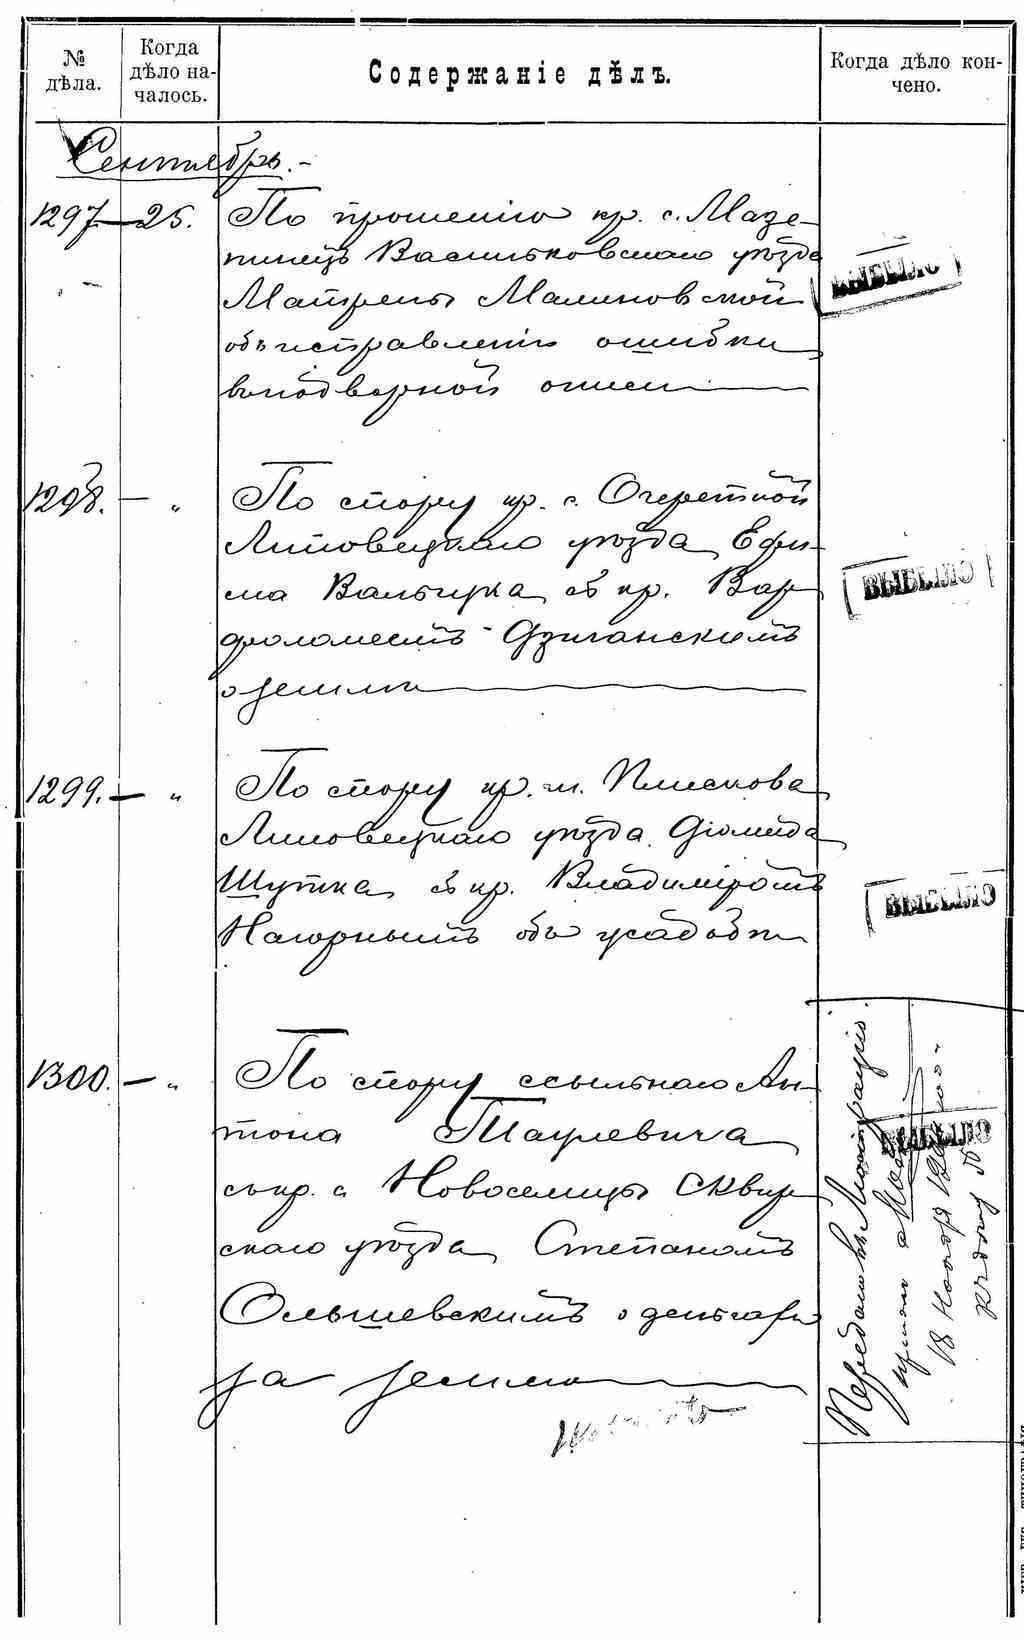 № дѣла.
Когда дѣло на-
чалось.
Содержаніе дѣлъ.
Когда дѣло кон-
чено.
Сентябрь.-
1297.—25. По прошенію кр. с. Мазе-
пинецъ Васильковскаго уѣзда
Матрены Малиновской
объ исправленіи ошибки
въ подворной описи
ВЫБЫЛО
1298. — „ По спору кр. с. Очеретной
Липовецкаго уѣзда Ефи-
ма Вальчука съ кр. Вар-
фоломеемъ Дзиганскимъ
о землѣ
ВЫБЫЛО
1299. — „ По спору кр. м. Плискова
Липовецкаго уѣзда Діомида
Шутка съ кр. Владиміромъ
Нагорнымъ объ усадьбѣ
ВЫБЫЛО
1300. — „ По спору ссыльнаго Ан-
тона
съ кр. с. Новоселицы Сквир-
скаго уѣзда Степаномъ
Ольшевскимъ о деньгахъ
за землю
ВЫБЫЛО
Передано въ
18 Ноября